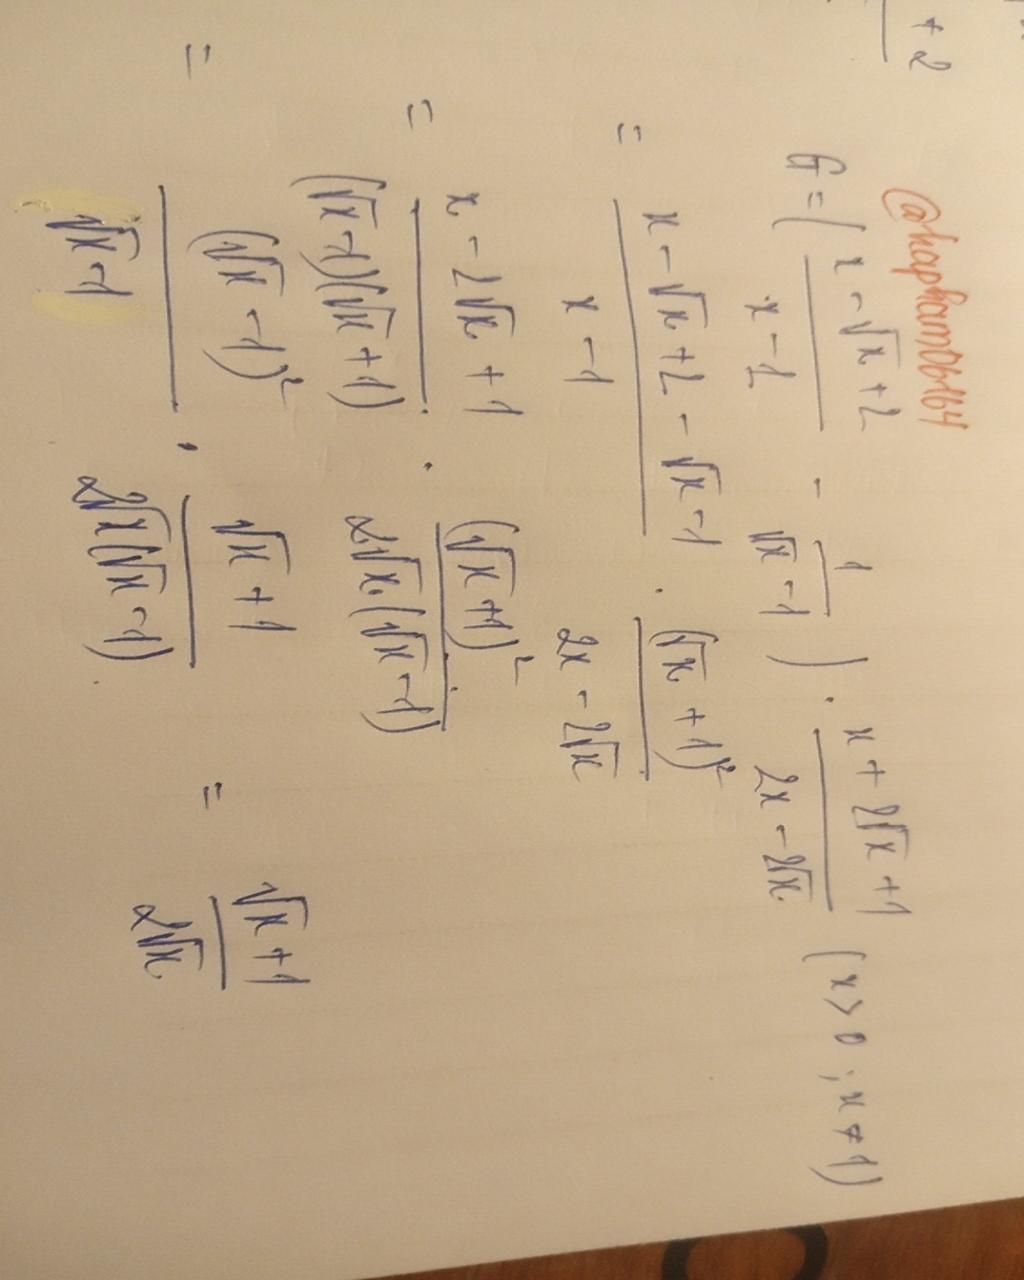 + 2
@hapham06164
G = ( (x - √x + 2)/(x - 1) - 1/(√x - 1) ) . (x + 2√x + 1)/(2x - 2√x) (x > 0 ; x ≠ 1)
= (x - √x + 2 - √x - 1)/(x - 1) . (√x + 1)²/(2x - 2√x)
= (x - 2√x + 1)/((√x - 1)(√x + 1)) . (√x + 1)²/(2√x.(√x - 1))
= (√x - 1)²/(√x - 1) . (√x + 1)/(2√x(√x - 1)) = (√x + 1)/(2√x)